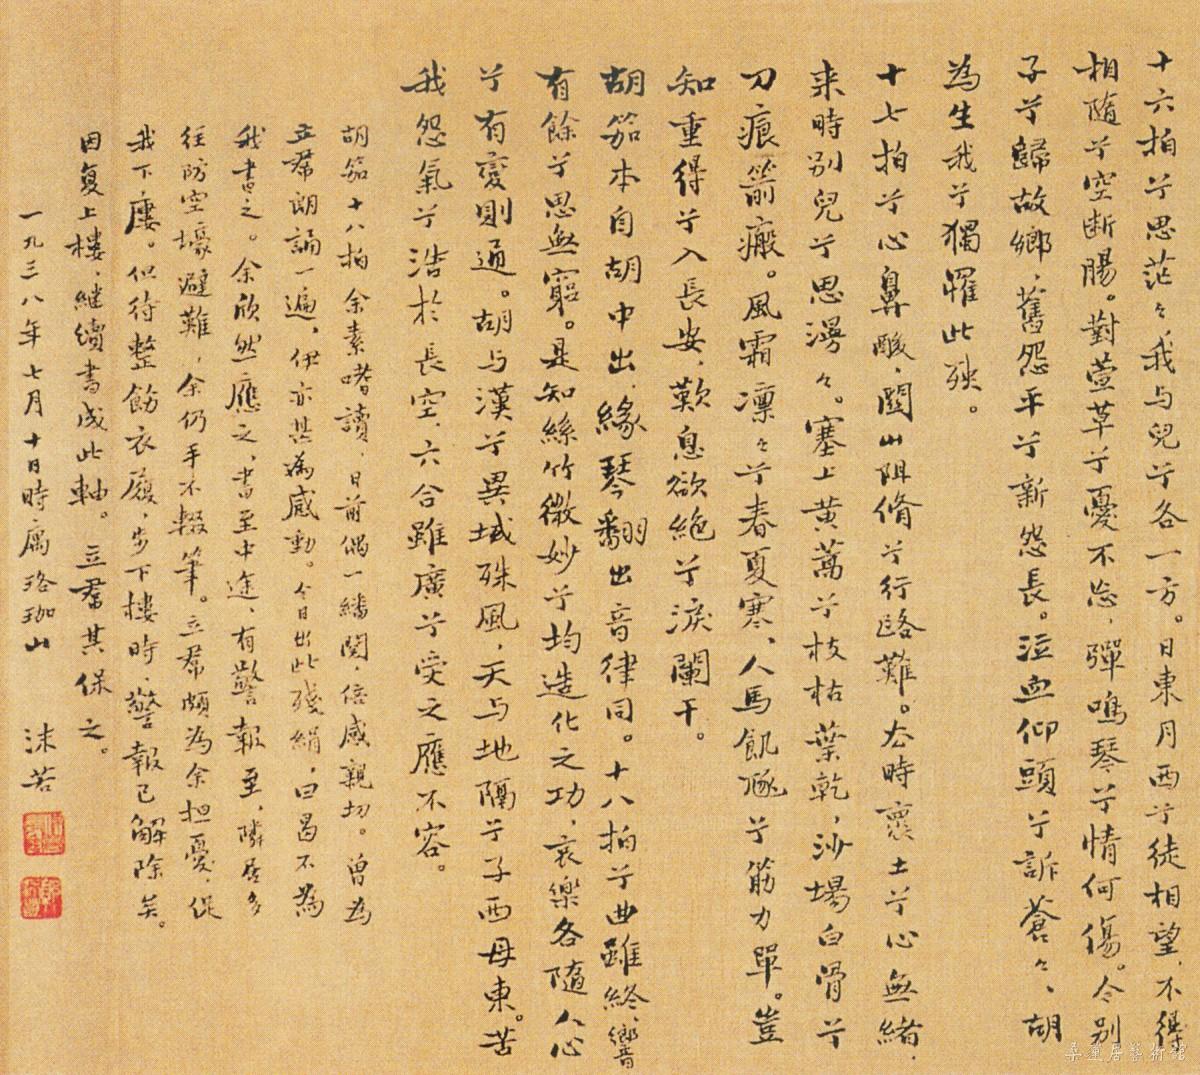 十六拍兮思茫々我与兒兮各一方。日東月西兮徒相望、不得
相随兮空断腸。對萱草兮憂不忘、彈鳴琴兮情何傷。今别
子兮歸故鄉、舊怨平兮新怨長。泣血仰頭兮訴蒼々、胡
為生我兮獨罹此殃。
十七拍兮心鼻酸、関山阻脩兮行路難。去時褱土兮心無緒、
来時别兒兮思漫々。塞上黄蒿兮枝枯葉乾、沙場白骨兮
刀痕箭瘢。風霜凛々兮春夏寒、人馬飢豗兮筋力單。豈
知重得兮入長安、歎息欲絶兮淚闌干。
胡笳本自胡中出、緣琴翻出音律同。十八拍兮曲雖終、響
有餘兮思無窮。是知絲竹微妙兮均造化之功、哀樂各隨人心
兮有變則通。胡与漢兮異域殊風、天与地隔兮子西母東。苦
我怨氣兮浩於長空、六合雖廣兮受之應不容。
胡笳十八拍、余素嗜讀、日前偶一繙閱、倍感親切。曾為
立羣朗誦一遍、伊亦甚為感動。今日出此殘絹、曰曷不為
我書之。余欣然應之、書至中途、有警報至、隣居多
往防空壕避難、余仍手不輟筆。立羣頗為余担憂、促
我下廔。但待整飭衣履、步下樓時、警報已解除矣。
因复上樓、継續書成此軸。立羣其保之。
一九三八年七月十日時寓珞珈山 沫若
桑蓮居藝術館